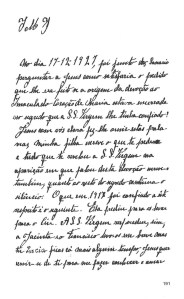 J. M. J.
No dia 17-12-1927, foi junto do Sacrario
perguntar a Jesus como satisfaria o pedido
que lhe era feito se a origem da devoção ao
Imaculado Coração de Maria estava encerrada
no segredo que a SS. Virgem lhe tinha confiado?
Jesus com voz clara fez-lhe ouvir estas palavras:
minha filha escreve o que te pedem;
e tudo o que te revelou a SS. Virgem na
aparição em que falou desta devoção escreve-o
também; quanto ao resto do segredo continua o
silêncio. O que em 1917 foi confiado a este
respeito é o seguinte: Ela pediu para os levar
para o Ceu. A SS. Virgem respondeu: sim,
a Jacinta e o Francisco levo-os em breve mas
tu Lucia ficas cá mais algum tempo, Jesus quer
servir-se de ti para me fazer conhecer e amar
191